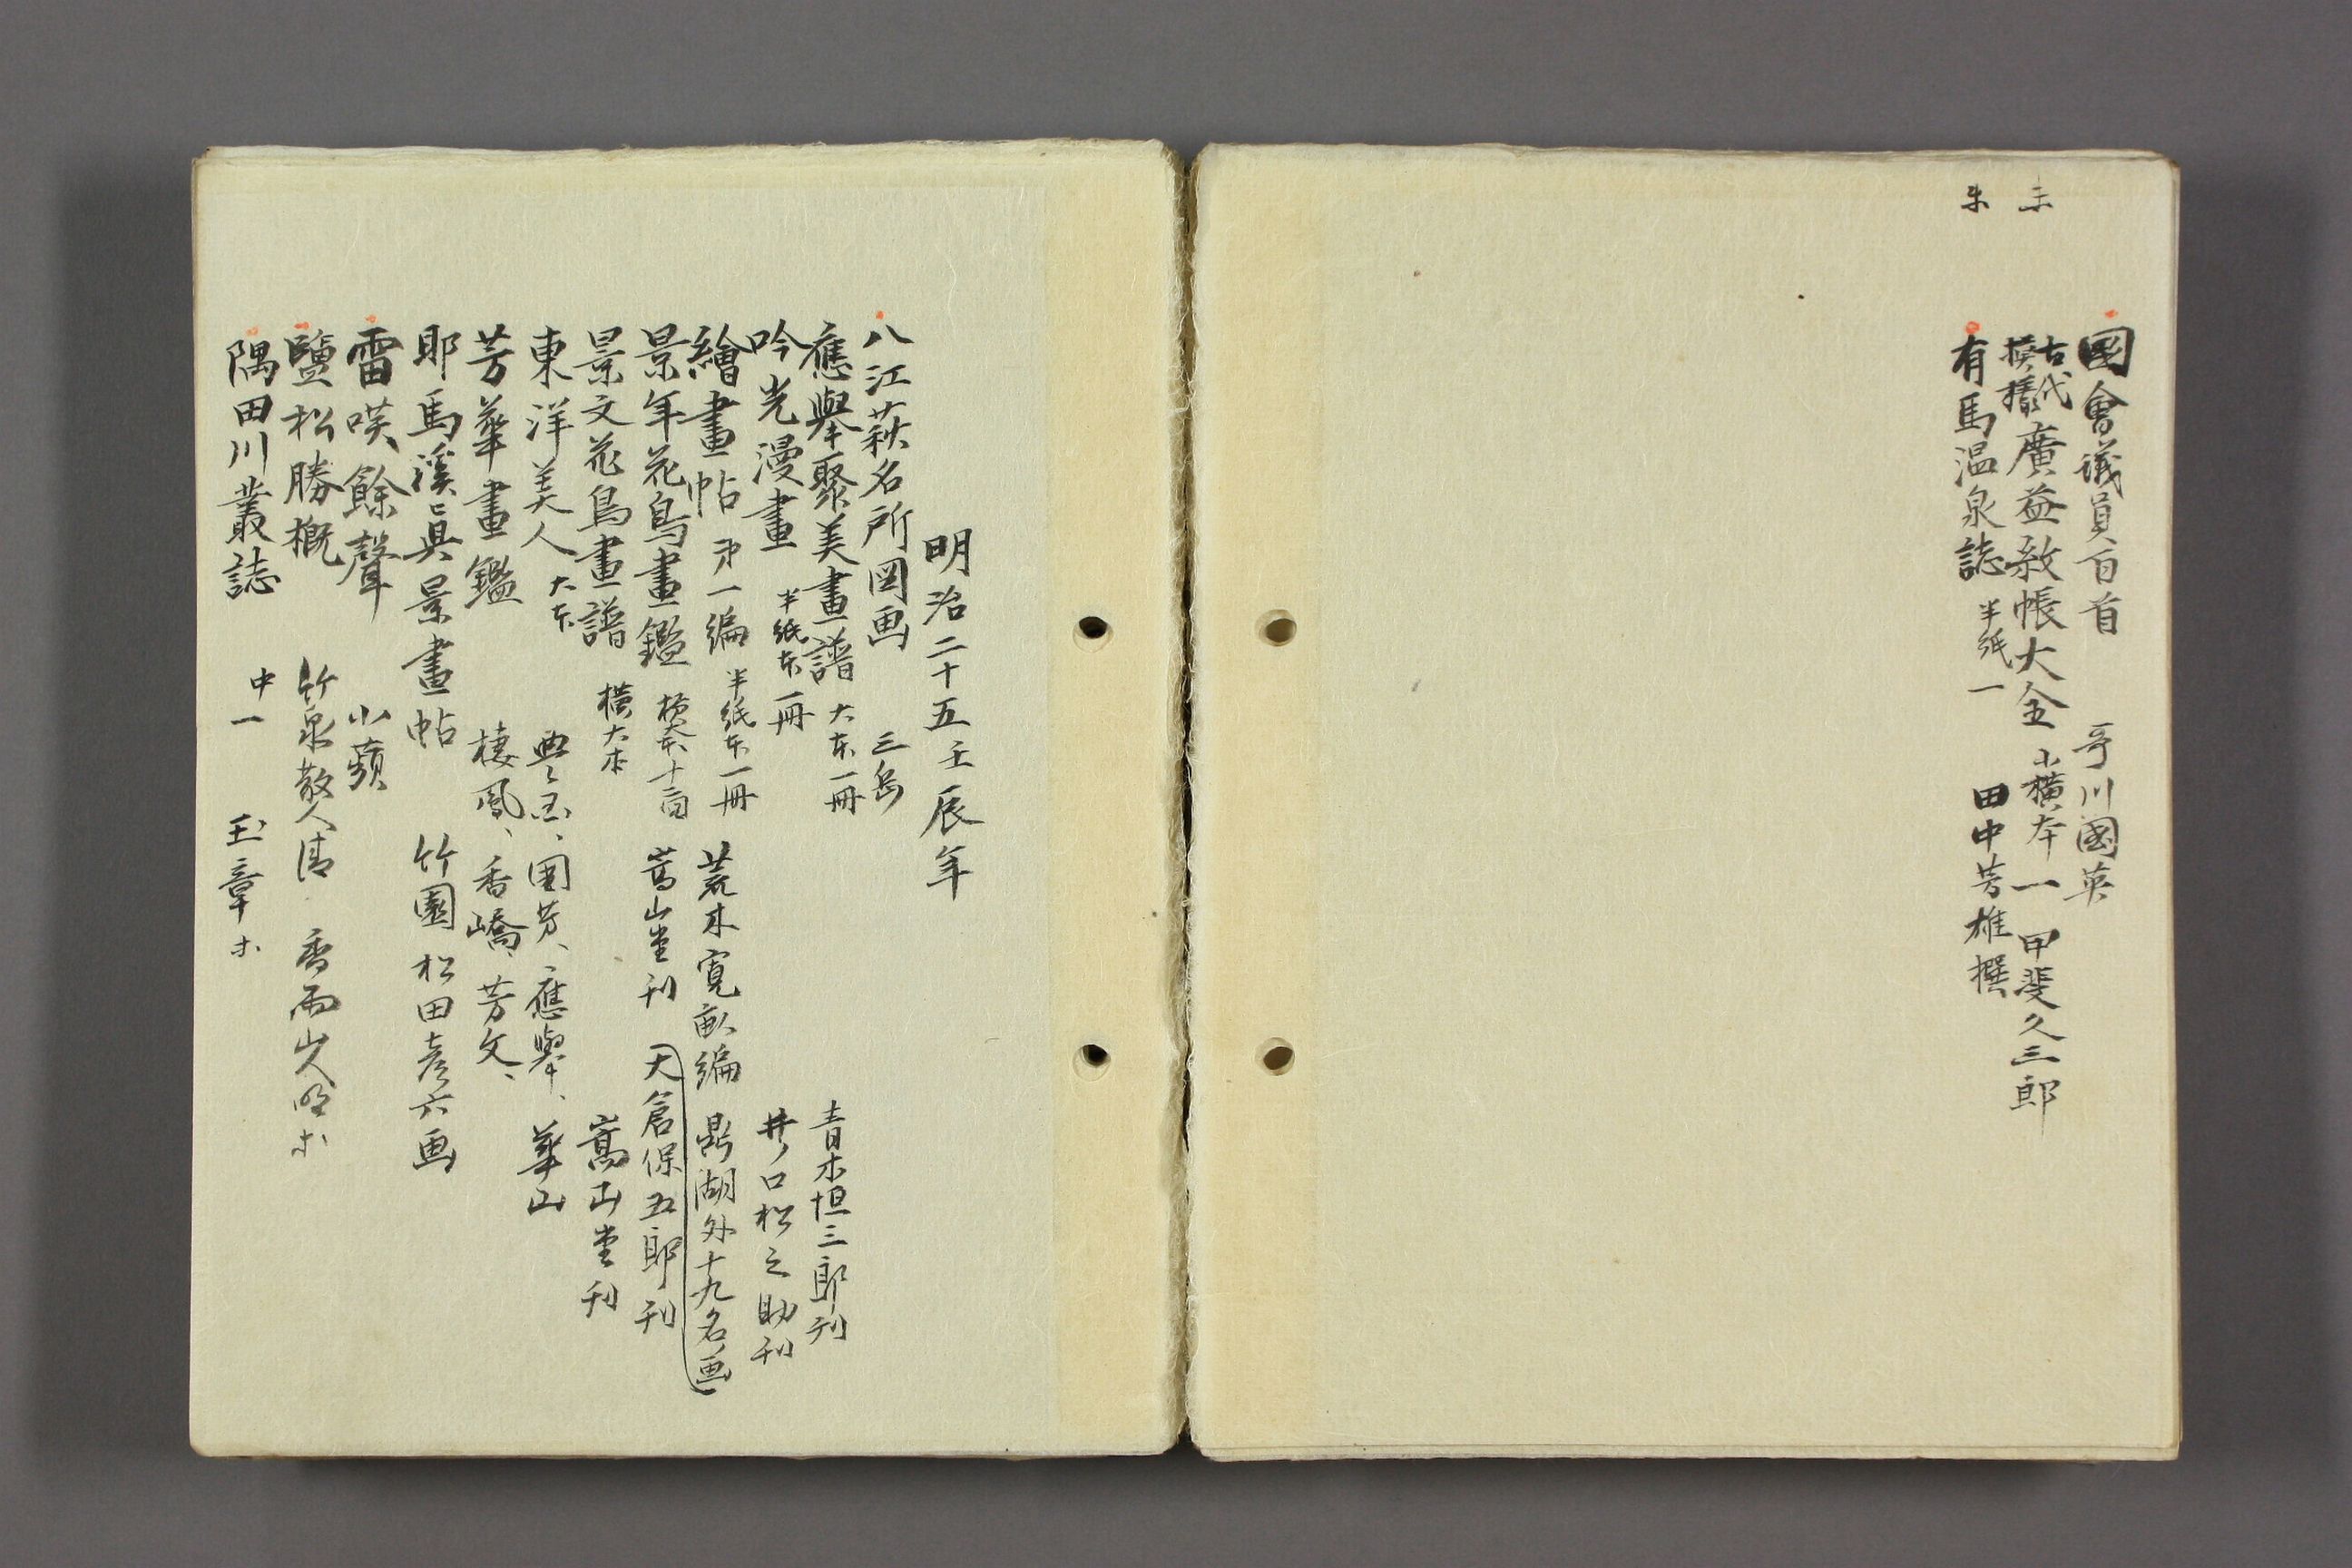 國會議員百首 哥川國英
古代模様廣益紋帳大全 小横本一 甲斐久三郎
有馬温泉誌 半紙一 田中芳雄撰
明治二十五壬辰年
八江萩名所図画 三岳
應舉聚美畫譜 大本一冊 青木恒三郎刊
吟光漫畫 半紙本一冊 井ノ口松之助刊
繪畫帖 第一編 半紙本一冊 荒木寛畝編 鼎湖外十九名画
景年花鳥畫鑑 嵩山堂刊 大倉保五郎刊
景文花鳥畫譜 横大本 嵩山堂刊
東洋美人 大本 國芳、應舉、華山
芳華畫鑑 棲鳳、香嶠、芳文、
耶馬溪真景畫帖 竹園松田彦六画
雷咲餘聲 小蘋
鹽松勝概 竹泉散人 香雨山人
隅田川叢誌 中一 玉章